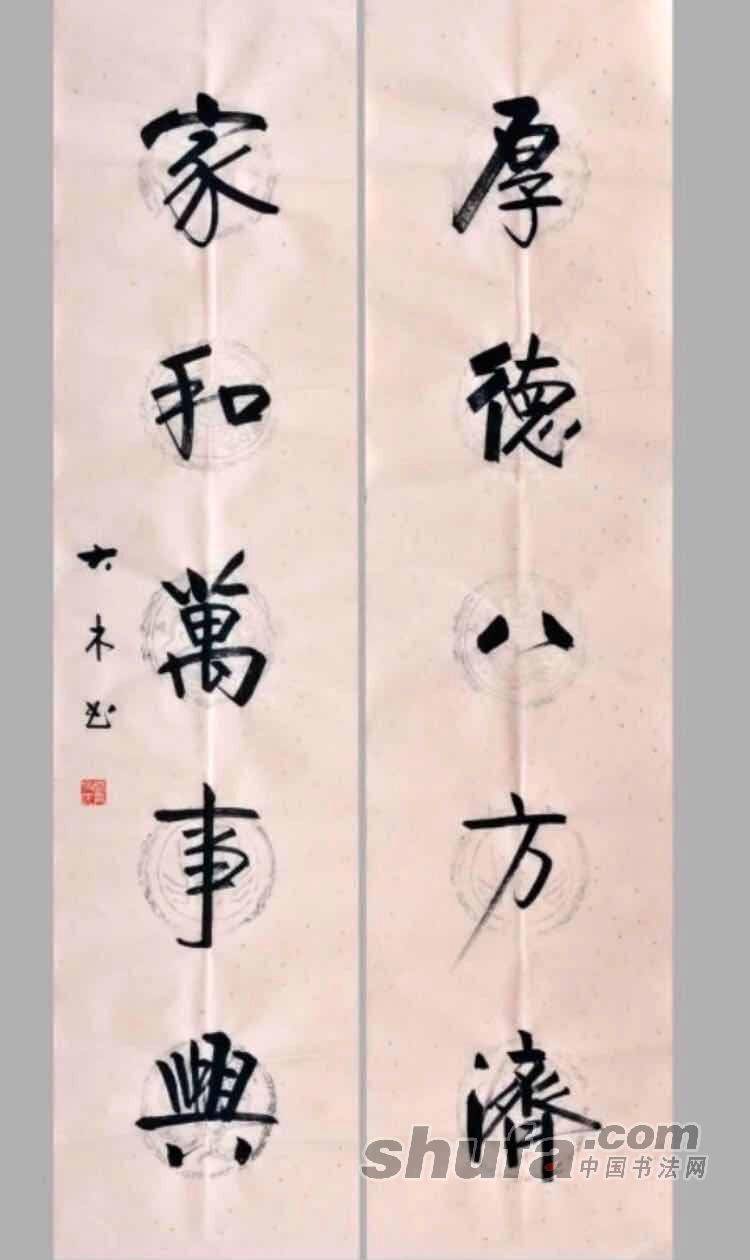 厚德八方濟
家和萬事興
大木书
shufa.com
中国书法网